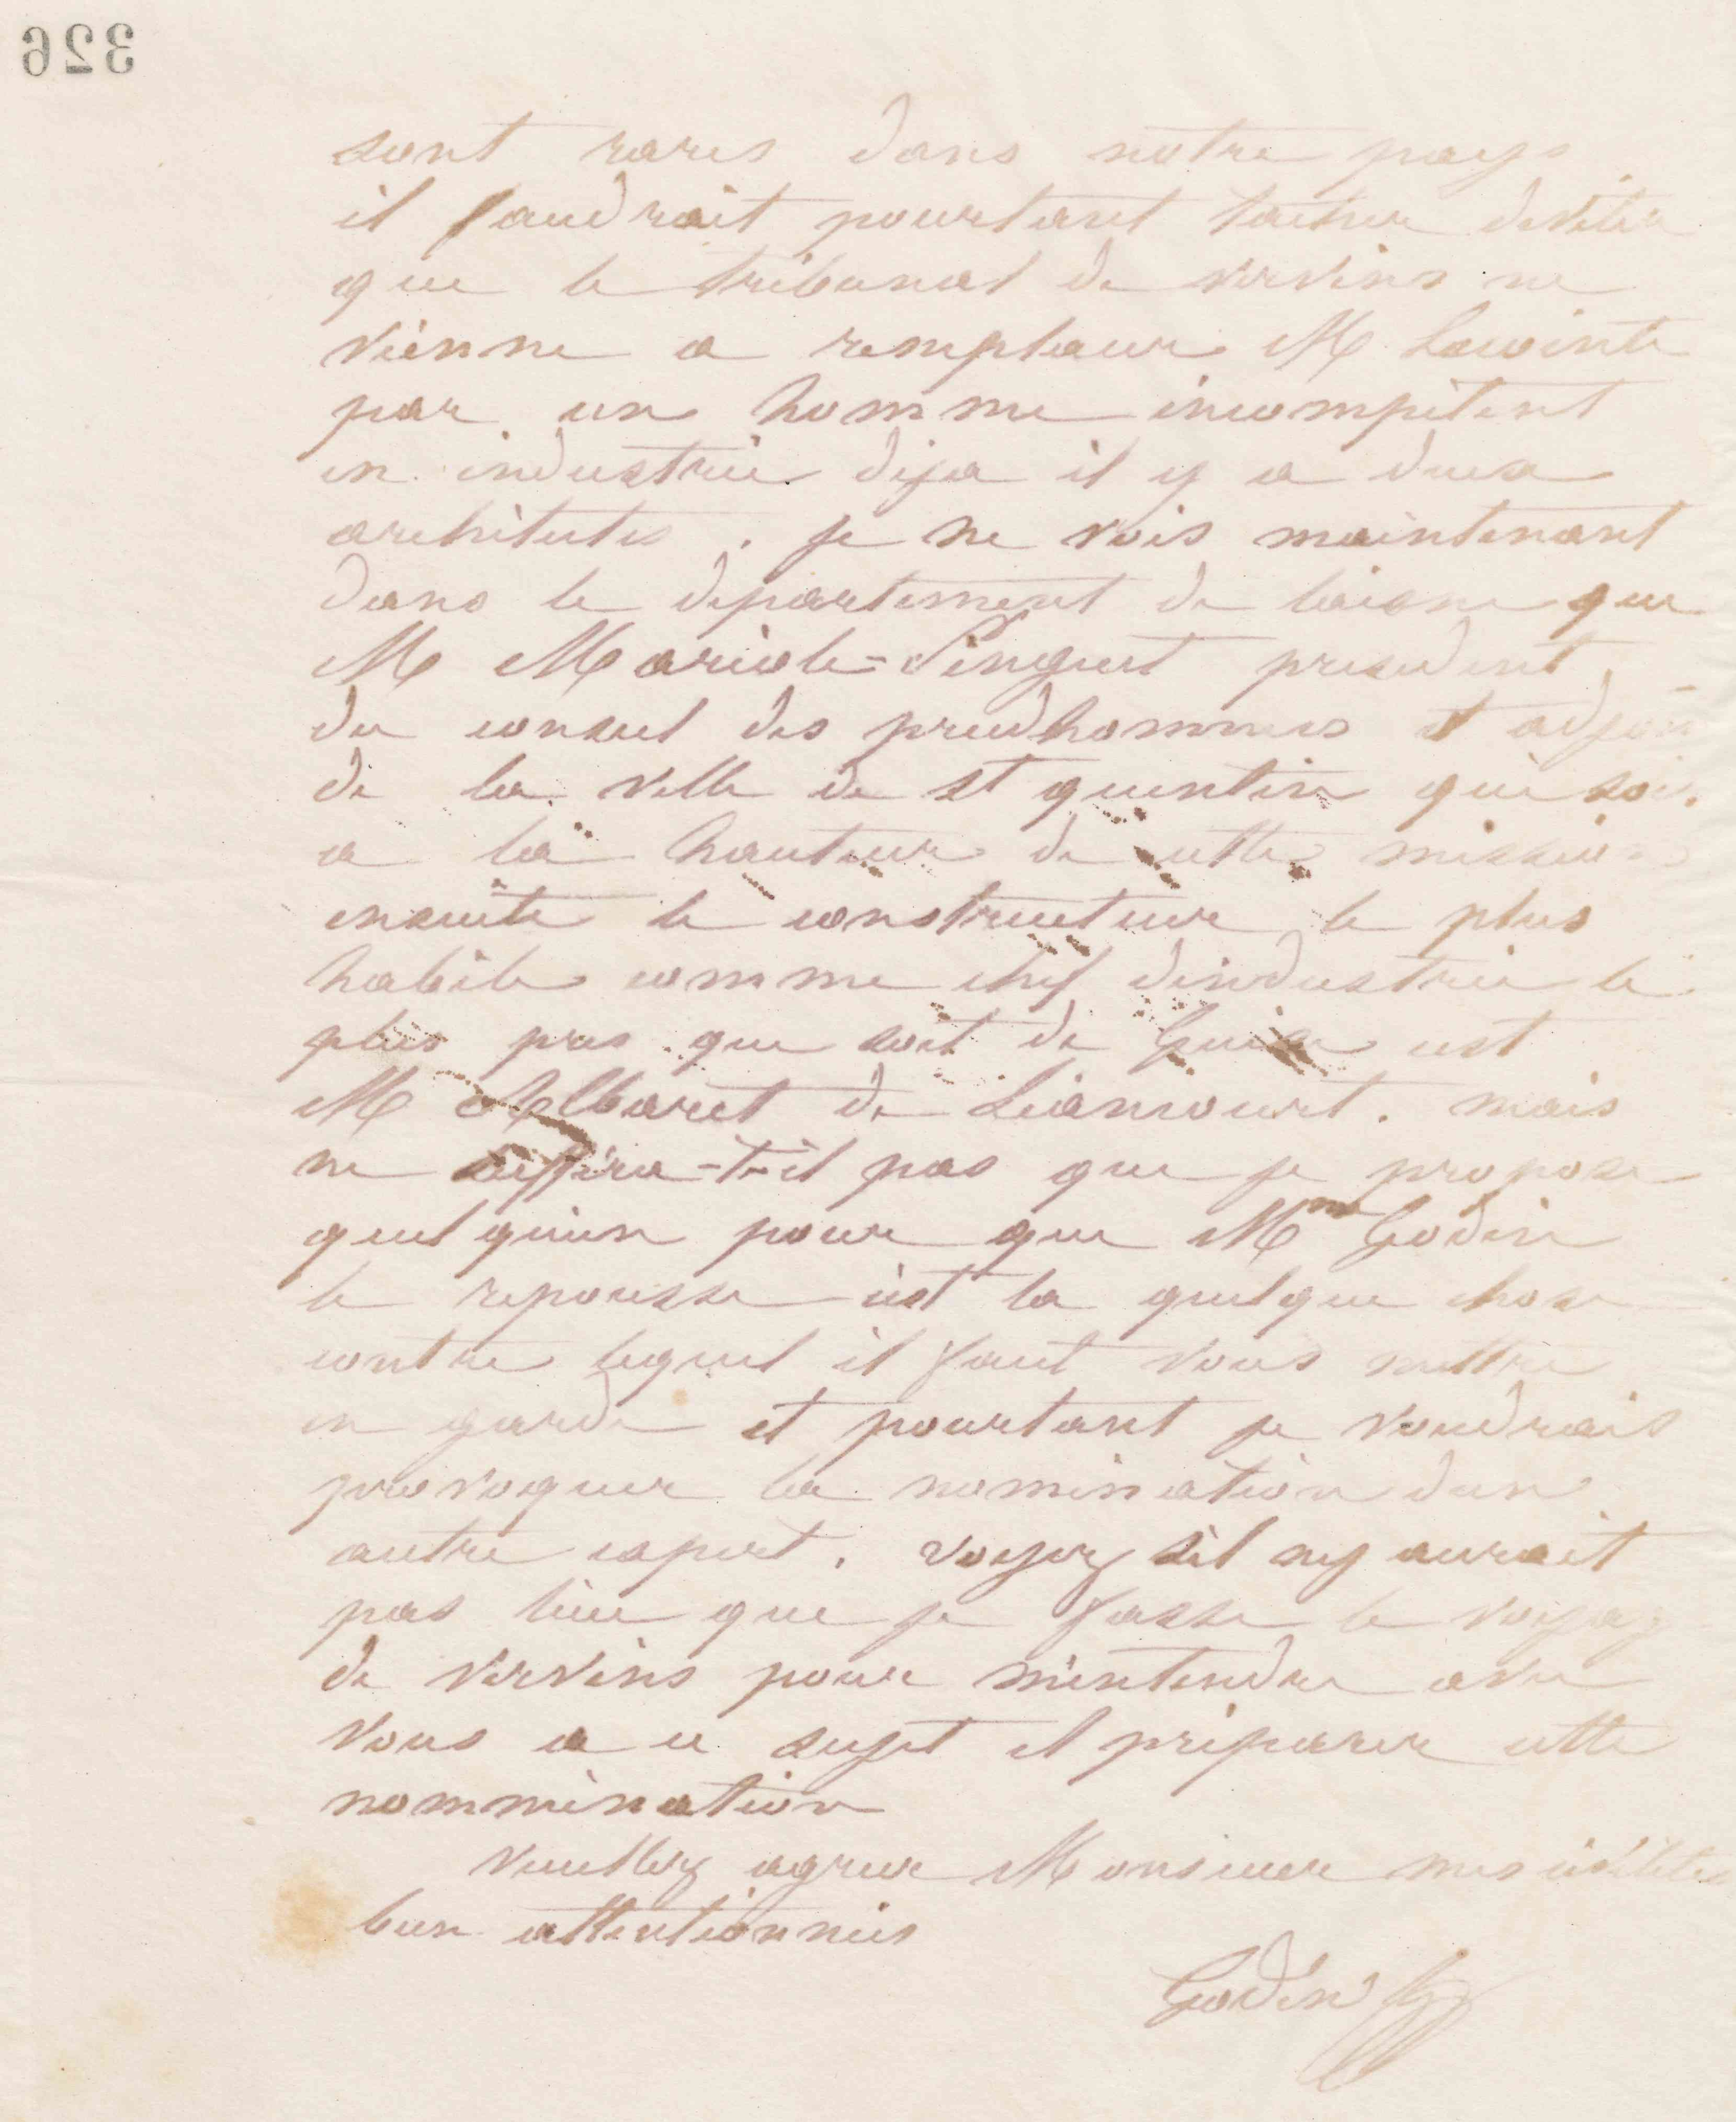 326
sont rares dans notre pays
il faudrait pourtant tacher deviter
que le tribunal de vervins ne
vienne a remplacer M Lecointe
par un homme incompétent
en industrie déja il y a deux
architectes . je ne vois maintenant
dans le departement de laisne que
M Mariole-Pinguet president
du conseil des prudhommes et adjoin
de la ville de st quentin qui soi
a la hauteur de cette mission
ensuite le constructeur le plus
habile comme chef dindustrie le
plus pres que soit de Guise est
M Albaret de Liancourt . mais
ne suffira-t-il pas que je propose
quelquun pour que Mme Godin
le repousse cest la quelque chose
contre lequel il faut vous mettre
en garde et pourtant je voudrais
provoquer la nomination dun
autre expert . voyez sil ny aurait
pas lieu que je fasse le voyag
de vervins pour m'entendre avec
vous a ce sujet et préparer cette
nommination
veuillez agreer Monsieur mes civilités
bien attentionnées
Godin